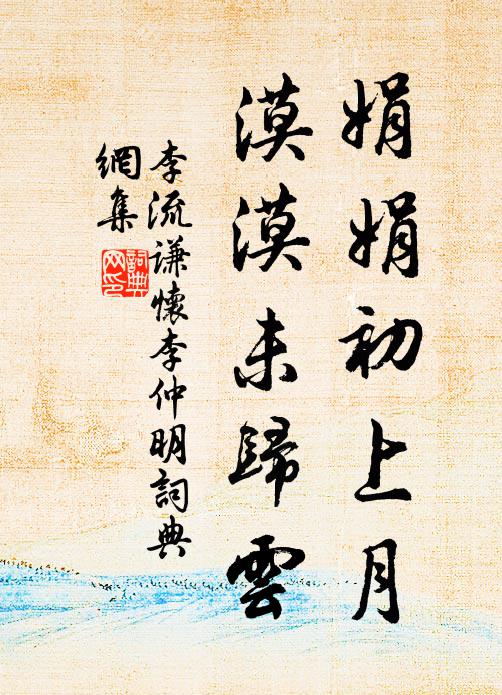 娟娟初上月
漠漠未歸雲
李流謙懷李仲明詞典
網集
詞典
网印